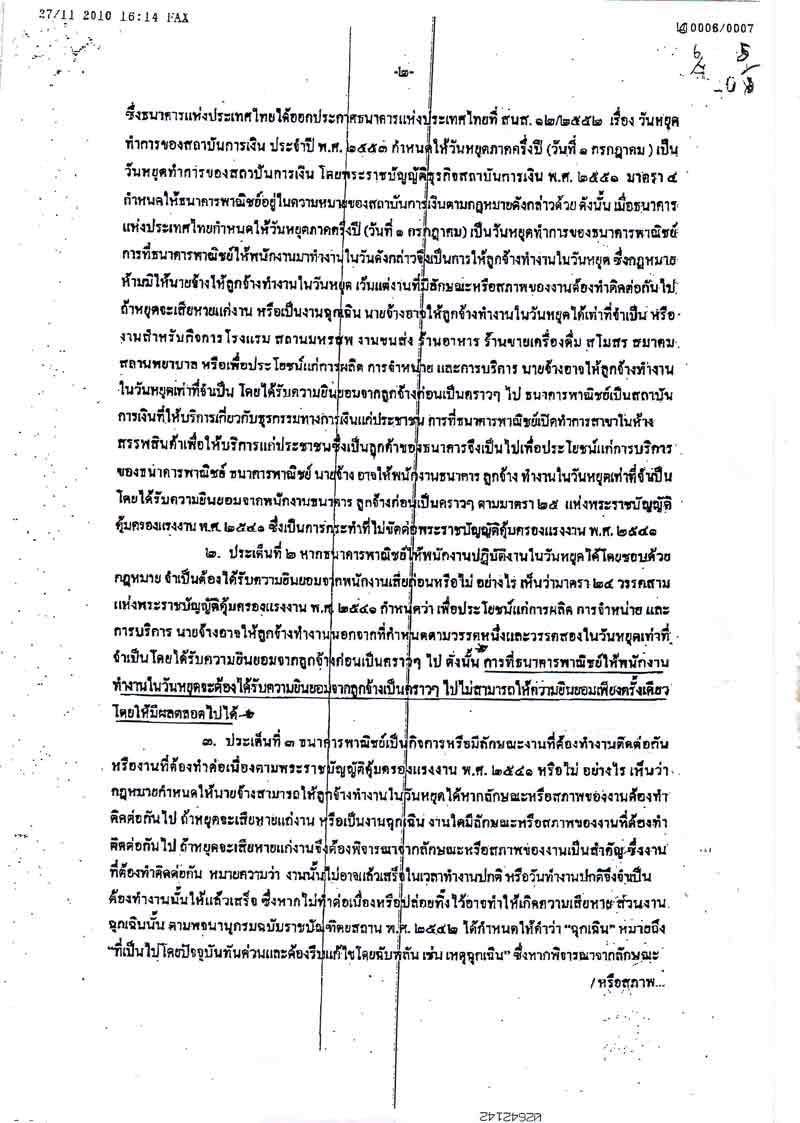 27/11 2010 16:14 FAX
0006/0007
-๒-
ซึ่งธนาคารแห่งประเทศไทยได้ออกประกาศธนาคารแห่งประเทศไทยที่ สนส. ๑๒/๒๕๕๒ เรื่อง วันหยุด
ทำการของสถาบันการเงิน ประจำปี พ.ศ. ๒๕๕๓ กำหนดให้วันหยุดภาคครึ่งปี (วันที่ ๑ กรกฎาคม ) เป็น
วันหยุดทำการของสถาบันการเงิน โดยพระราชบัญญัติธุรกิจสถาบันการเงิน พ.ศ. ๒๕๕๑ มาตรา ๔
กำหนดให้ธนาคารพาณิชย์อยู่ในความหมายของสถาบันการเงินตามกฎหมายดังกล่าวด้วย ดังนั้น เมื่อธนาคาร
แห่งประเทศไทยกำหนดให้วันหยุดภาคครึ่งปี (วันที่ ๑ กรกฎาคม) เป็นวันหยุดทำการของธนาคารพาณิชย์
การที่ธนาคารพาณิชย์ให้พนักงานมาทำงานในวันดังกล่าวจึงเป็นการให้ลูกจ้างทำงานในวันหยุด ซึ่งกฎหมาย
ห้ามมิให้นายจ้างให้ลูกจ้างทำงานในวันหยุด เว้นแต่งานที่มีลักษณะหรือสภาพของงานต้องทำติดต่อกันไป
ถ้าหยุดจะเสียหายแก่งาน หรือเป็นงานฉุกเฉิน นายจ้างอาจให้ลูกจ้างทำงานในวันหยุดได้เท่าที่จำเป็น หรือ
งานสำหรับกิจการโรงแรม สถานมหรสพ งานขนส่ง ร้านอาหาร ร้านขายเครื่องดื่ม สโมสร สมาคม
สถานพยาบาล หรือเพื่อประโยชน์แก่การผลิต การจำหน่าย และการบริการ นายจ้างอาจให้ลูกจ้างทำงาน
ในวันหยุดเท่าที่จำเป็น โดยได้รับความยินยอมจากลูกจ้างก่อนเป็นคราวๆ ไป ธนาคารพาณิชย์เป็นสถาบัน
การเงินที่ให้บริการเกี่ยวกับธุรกรรมทางการเงินแก่ประชาชน การที่ธนาคารพาณิชย์เปิดทำการสาขาในห้าง
สรรพสินค้าเพื่อให้บริการแก่ประชาชนซึ่งเป็นลูกค้าของธนาคารจึงเป็นไปเพื่อประโยชน์แก่การบริการ
ของธนาคารพาณิชย์ ธนาคารพาณิชย์ นายจ้าง อาจให้พนักงานธนาคาร ลูกจ้าง ทำงานในวันหยุดเท่าที่จำเป็น
โดยได้รับความยินยอมจากพนักงานธนาคาร ลูกจ้างก่อนเป็นคราวๆ ตามมาตรา ๒๕ แห่งพระราชบัญญัติ
คุ้มครองแรงงาน พ.ศ. ๒๕๔๑ ซึ่งเป็นการกระทำที่ไม่ขัดต่อพระราชบัญญัติคุ้มครองแรงงาน พ.ศ. ๒๕๔๑
๒. ประเด็นที่ ๒ หากธนาคารพาณิชย์ให้พนักงานปฏิบัติงานในวันหยุดได้โดยชอบด้วย
กฎหมาย จำเป็นต้องได้รับความยินยอมจากพนักงานเสียก่อนหรือไม่ อย่างไร เห็นว่ามาตรา ๒๕ วรรคสาม
แห่งพระราชบัญญัติคุ้มครองแรงงาน พ.ศ. ๒๕๔๑ กำหนดว่า เพื่อประโยชน์แก่การผลิต การจำหน่าย และ
การบริการ นายจ้างอาจให้ลูกจ้างทำงานนอกจากที่กำหนดตามวรรคหนึ่งและวรรคสองในวันหยุดเท่าที่
จำเป็นโดยได้รับความยินยอมจากลูกจ้างก่อนเป็นคราวๆ ไป ดังนั้น การที่ธนาคารพาณิชย์ให้พนักงาน
ทำงานในวันหยุดจะต้องได้รับความยินยอมจากลูกจ้างเป็นคราวๆ ไปไม่สามารถให้ความยินยอมเพียงครั้งเดียว
โดยให้มีผลตลอดไปได้
๓. ประเด็นที่ ๓ ธนาคารพาณิชย์เป็นกิจการหรือมีลักษณะงานที่ต้องทำงานติดต่อกัน
หรืองานที่ต้องทำต่อเนื่องตามพระราชบัญญัติคุ้มครองแรงงาน พ.ศ. ๒๕๔๑ หรือไม่ อย่างไร เห็นว่า
กฎหมายกำหนดให้นายจ้างสามารถให้ลูกจ้างทำงานในวันหยุดได้หากลักษณะหรือสภาพของงานต้องทำ
ติดต่อกันไป ถ้าหยุดจะเสียหายแก่งาน หรือเป็นงานฉุกเฉิน งานใดมีลักษณะหรือสภาพของงานที่ต้องทำ
ติดต่อกันไป ถ้าหยุดจะเสียหายแก่งานจึงต้องพิจารณาจากลักษณะหรือสภาพของงานเป็นสำคัญ ซึ่งงาน
ที่ต้องทำติดต่อกัน หมายความว่า งานนั้นไม่อาจแล้วเสร็จในเวลาทำงานปกติ หรือวันทำงานปกติจึงจำเป็น
ต้องทำงานนั้นให้แล้วเสร็จ ซึ่งหากไม่ทำต่อเนื่องหรือปล่อยทิ้งไว้อาจทำให้เกิดความเสียหาย ส่วนงาน
ฉุกเฉินนั้น ตามพจนานุกรมฉบับราชบัณฑิตยสถาน พ.ศ. ๒๕๔๒ ได้กำหนดให้คำว่า "ฉุกเฉิน" หมายถึง
"ที่เป็นไปโดยปัจจุบันทันด่วนและต้องรีบแก้ไขโดยฉับพลัน เช่น เหตุฉุกเฉิน" ซึ่งหากพิจารณาจากลักษณะ
/หรือสภาพ...
02642142